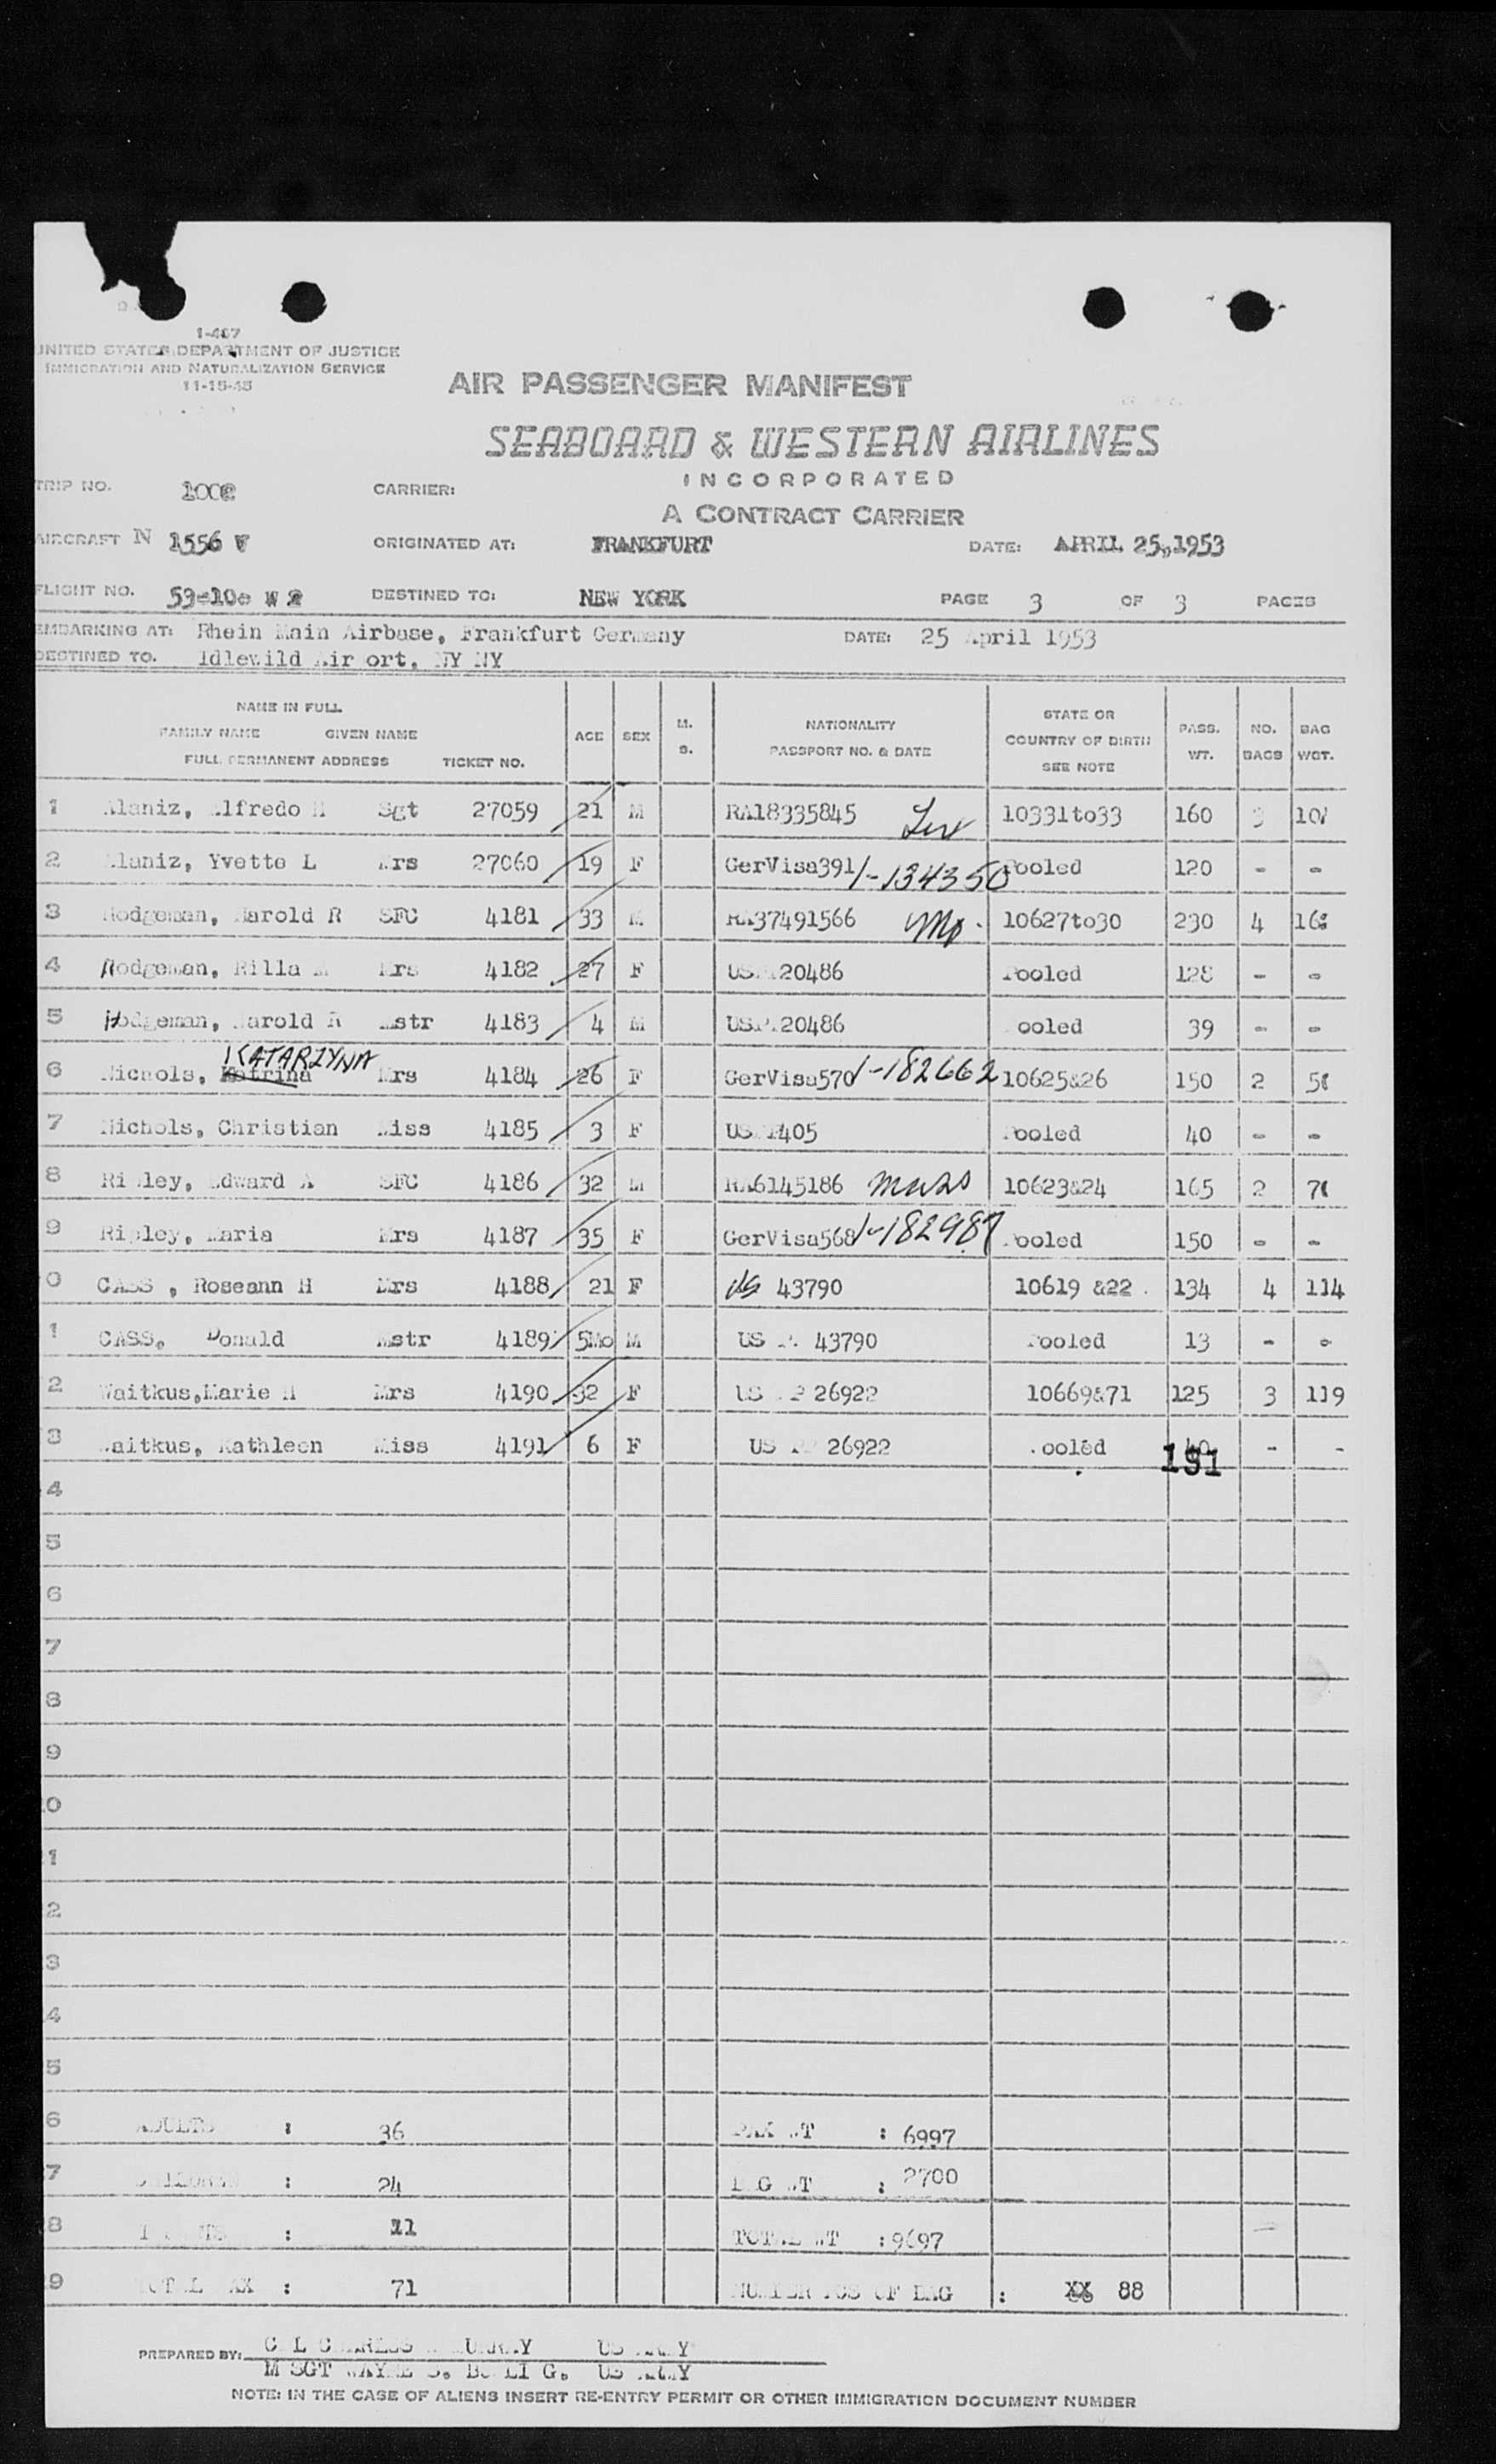 1-467
UNITED STATES DEPARTMENT OF JUSTICE
IMMIGRATION AND NATURALIZATION SERVICE
11-15-45
AIR PASSENGER MANIFEST
SEABOARD & WESTERN AIRLINES
INCORPORATED
A CONTRACT CARRIER
TRIP NO. CARRIER:
AIRCRAFT N 1556 V ORIGINATED AT: FRANKFURT DATE: APRIL 25, 1953
FLIGHT NO. DESTINED TO: NEW YORK PAGE 3 OF 3 PAGES
EMBARKING AT: Rhein Main Airbase, Frankfurt Germany DATE: 25 April 1953
DESTINED TO. Idlewild Airport, NY NY
NAME IN FULL
FAMILY NAME GIVEN NAME
FULL PERMANENT ADDRESS TICKET NO.
AGE SEX M. S. NATIONALITY PASSPORT NO. & DATE STATE OR COUNTRY OF BIRTH SEE NOTE PASS. WT. NO. BAGS BAG WGT.
1 Alaniz, Alfredo Sgt 27059 21 M RA18335845 10331to33 160 3
2 Alaniz, Yvette L Mrs 27060 19 F GerVisa391 1-134350 Pooled 120 - -
3 Hodgeman, Harold R SFC 4181 33 M RA37491566 Mo. 10627to30 230 4
4 Hodgeman, Rilla M Mrs 4182 27 F US 20486 Pooled 128 - -
5 Hodgeman, Harold R Mstr 4183 4 M US 20486 Pooled 39 - -
KATARZYNA
6 Nichols, Katrina Mrs 4184 26 F GerVisa570 1-182662 10625&26 150 2
7 Nichols, Christian Miss 4185 3 F US 1405 Pooled 40 - -
8 Ripley, Edward A SFC 4186 32 M RA6145186 Mass 10623&24 165 2
9 Ripley, Maria Mrs 4187 35 F GerVisa568 1-182987 Pooled 150 - -
0 CASS , Roseann H Mrs 4188 21 F US 43790 10619 &22 134 4 114
1 CASS, Donald Mstr 4189 5Mo M US 43790 Pooled 13 - -
2 Waitkus,Marie H Mrs 4190 32 F US PP 26922 10669&71 125 3 119
3 Waitkus, Kathleen Miss 4191 6 F US PP 26922 Pooled 40 - -
191
4
5
6
7
8
9
0
1
2
3
4
5
6 ADULTS : 36 PAX WT : 6997
7 CHILDREN : 24 BAG WT : 2700
8 INFANTS : 11 TOTAL WT : 9697
9 TOTAL PAX : 71 NUMBER PCS OF BAG : XX 88
PREPARED BY: US ARMY
M SGT WAYNE US ARMY
NOTE: IN THE CASE OF ALIENS INSERT RE-ENTRY PERMIT OR OTHER IMMIGRATION DOCUMENT NUMBER